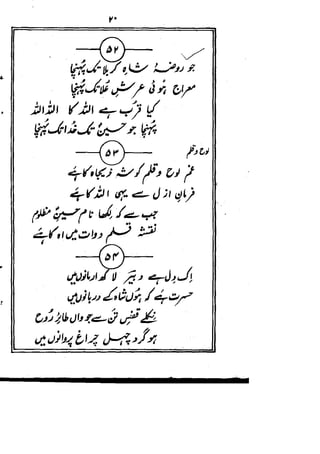 ۲۰
۵۲
جو روضۂ شاہِ کربلا تک پہنچا
معراج ہوئی عرشِ عُلا تک پہنچا
کیا قرب ہے اللہ کا اللہ اللہ
پہنچا جو حسینؑ تک خدا تک پہنچا
۵۳
لوح و قلم
غم لوح و قلم کو شہِ ذیجاہ کا ہے
فرمانِ ازل سے یہی اللہ کا ہے
جب سے کہ لکھا نام حسینؑ مظلوم
نقشہ قلم دوات میں آہ کا ہے
۵۴
اک دل ہے دبیرؔ لاکھ ارمانوں میں
حسرت ہے کہ ہوں شاہ کے دربانوں میں
نکلے قفسِ تن سے جو واں طائرِ روح
ہو گرد چہل چراغ پروانوں میں